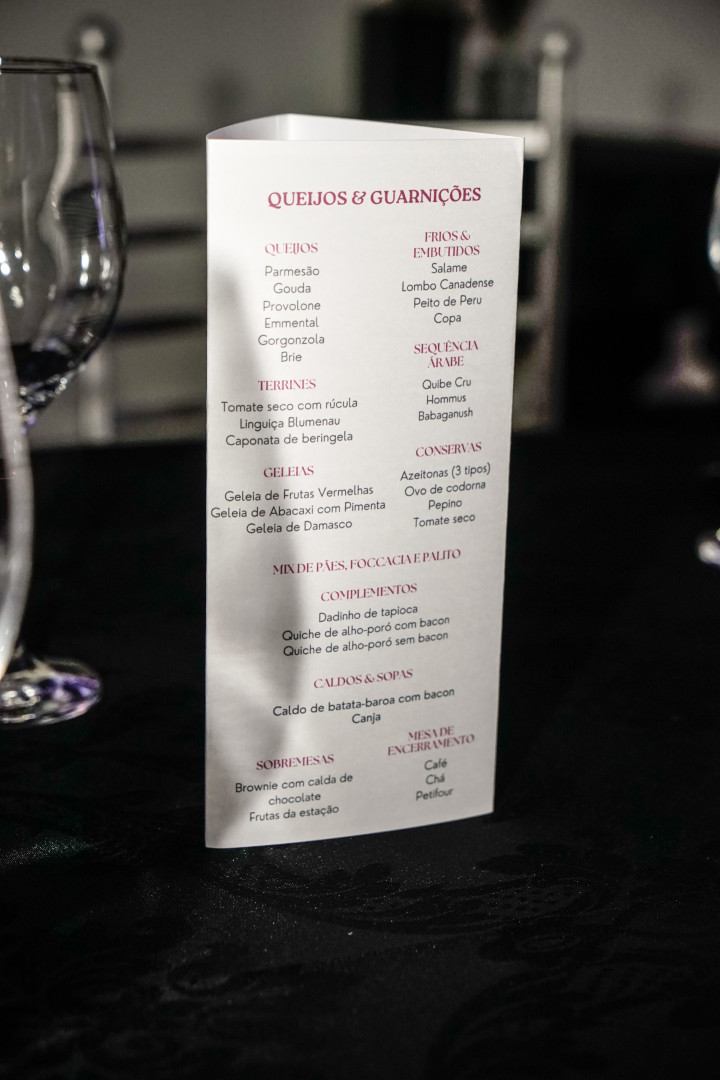 QUEIJOS & GUARNIÇÕES
QUEIJOS
Parmesão
Gouda
Provolone
Emmental
Gorgonzola
Brie
TERRINES
Tomate seco com rúcula
Linguiça Blumenau
Caponata de beringela
GELEIAS
Geleia de Frutas Vermelhas
Geleia de Abacaxi com Pimenta
Geleia de Damasco
FRIOS &
EMBUTIDOS
Salame
Lombo Canadense
Peito de Peru
Copa
SEQUÊNCIA
ÁRABE
Quibe Cru
Hommus
Babaganush
CONSERVAS
Azeitonas (3 tipos)
Ovo de codorna
Pepino
Tomate seco
MIX DE PÃES, FOCCACIA E PALITO
COMPLEMENTOS
Dadinho de tapioca
Quiche de alho-poró com bacon
Quiche de alho-poró sem bacon
CALDOS & SOPAS
Caldo de batata-baroa com bacon
Canja
SOBREMESAS
Brownie com calda de
chocolate
Frutas da estação
MESA DE
ENCERRAMENTO
Café
Chá
Petifour